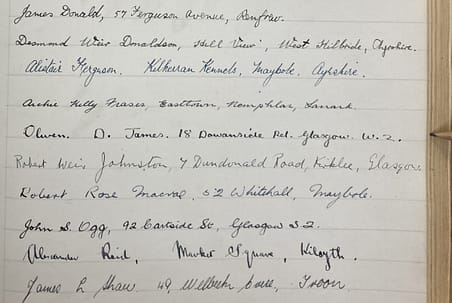 James Donald, 57 Ferguson Avenue, Renfrew.
Desmond Weir Donaldson, Hill View, West Kilbride, Ayrshire.
Alistair Ferguson. Kilkerran Kennels, Maybole, Ayrshire.
Archie Kelly Fraser, Easttown, Nemphlar, Lanark.
Olwen. D. James. 18 Dowanside Rd. Glasgow. W.2.
Robert Weir Johnston, 7 Dundonald Road, Kirklee, Glasgow.
Robert Rose Macrae, 52 Whitehall, Maybole.
John S. Ogg, 92 Cartside St, Glasgow S2.
Alexander Reid, Market Square, Kilsyth.
James L Shaw 49, Welbeck Cres, Troon